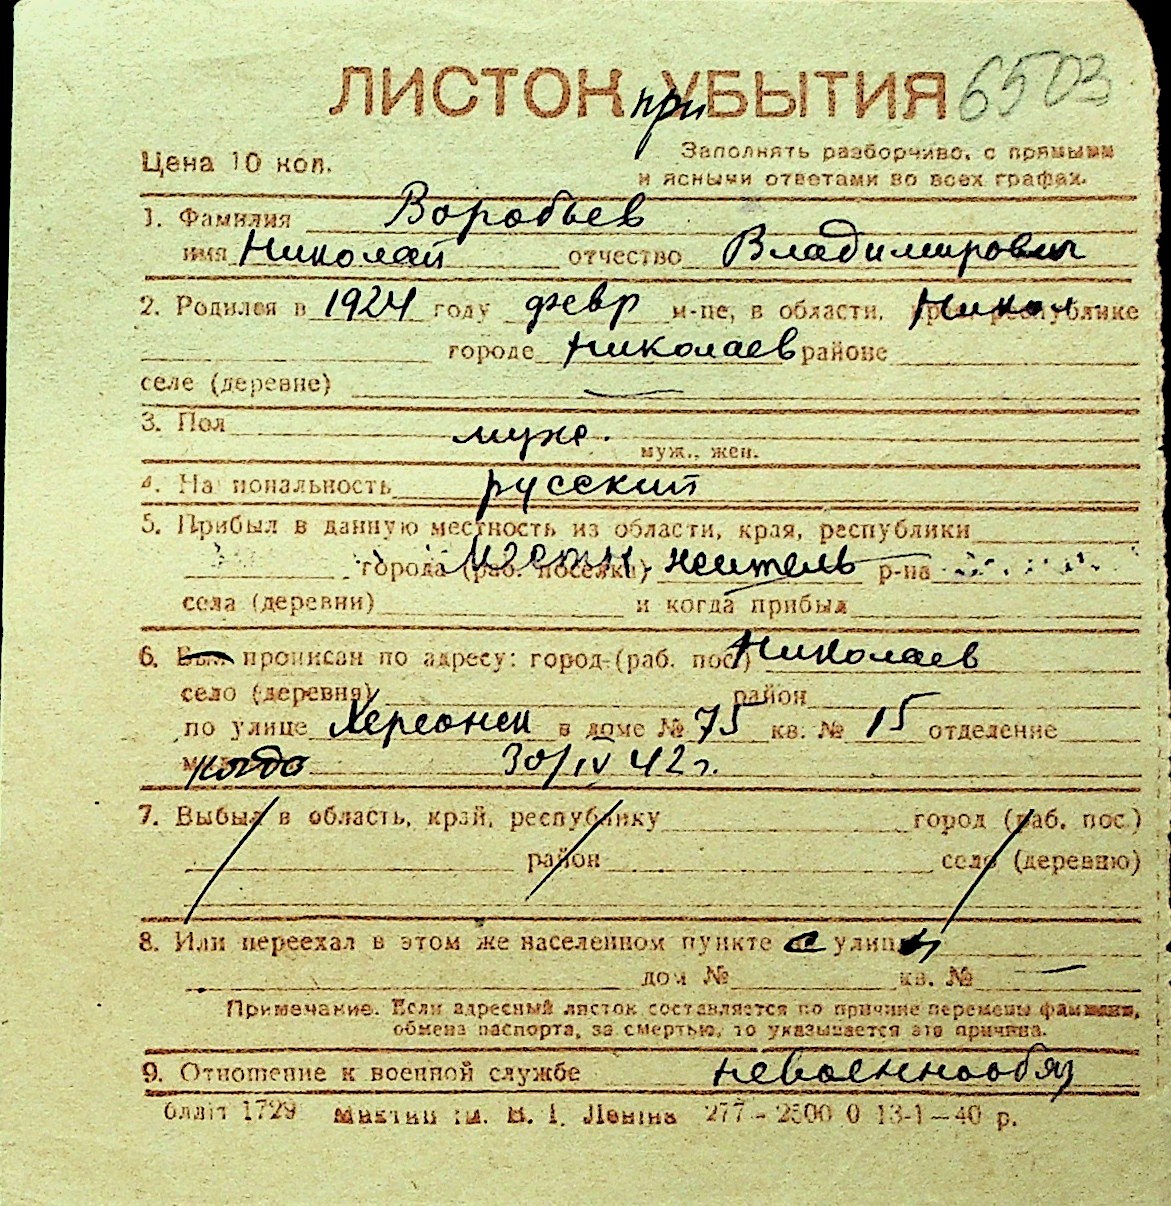 ЛИСТОК при УБЫТИЯ 6503
Цена 10 коп.
Заполнять разборчиво, с прямыми
и ясными ответами во всех графах.
1. Фамилия Воробьев
имя Николай отчество Владимирович
2. Родился в 1924 году февр м-це, в области, края, республике Никол
городе Николаев районе
селе (деревне) —
3. Пол муж.
муж., жен.
4. Национальность русский
5. Прибыл в данную местность из области, края, республики
города (раб. поселка) местн. житель р-на
села (деревни) и когда прибыл
6. Был прописан по адресу: город (раб. пос.) Николаев
село (деревня) район
по улице Херсонск в доме № 75 кв. № 15 отделение
когда 30/IV 42 г.
7. Выбыл в область, край, республику город (раб. пос.)
район село (деревню)
8. Или переехал в этом же населенном пункте с улицы
дом № кв. № —
Примечание. Если адресный листок составляется по причине перемены фамилии,
обмена паспорта, за смертью, то указывается эта причина.
9. Отношение к военной службе невоеннообяз
блліт 1729 В. І. Леніна 277 – 2500 0 13-1—40 р.